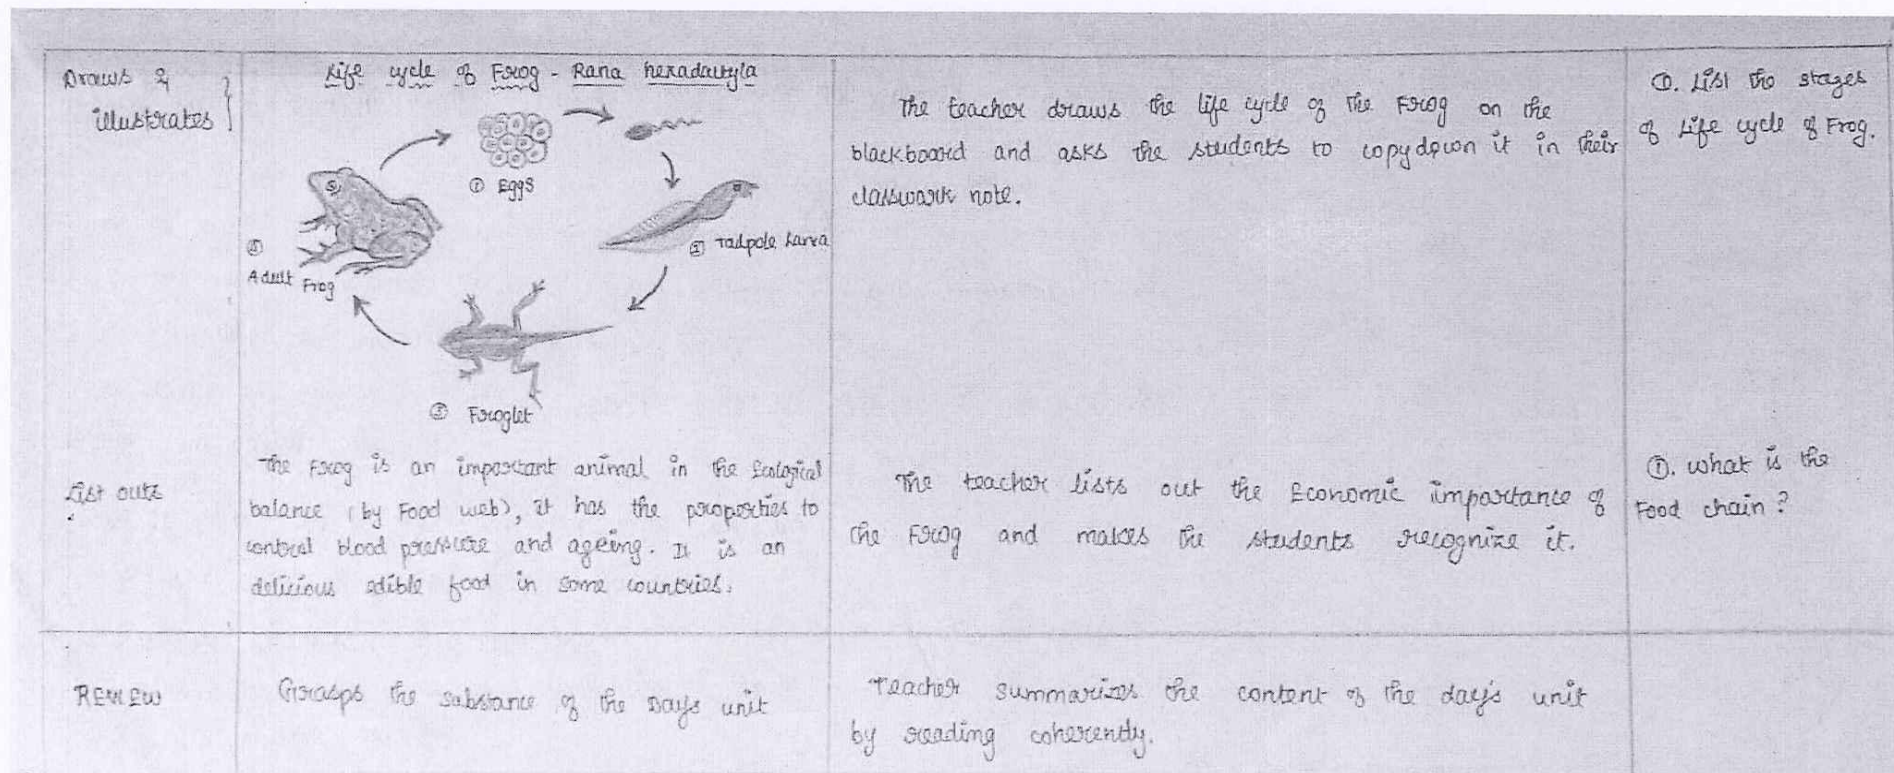 Draws &
illustrates
Life cycle of Frog - Rana hexadactyla
① Eggs
② Tadpole Larva
③ Froglet
⑤
Adult Frog
The teacher draws the life cycle of the Frog on the
blackboard and asks the students to copydown it in their
classwork note.
①. List the stages
of Life cycle of Frog.
List outs
The Frog is an important animal in the Ecological
balance (by Food web), it has the properties to
control blood pressure and ageing. It is an
delicious edible food in some countries.
The teacher lists out the Economic importance of
the Frog and makes the students recognize it.
①. What is the
Food chain?
REVIEW
Grasps the substance of the Days unit
Teacher summarizes the content of the day's unit
by reading coherently.